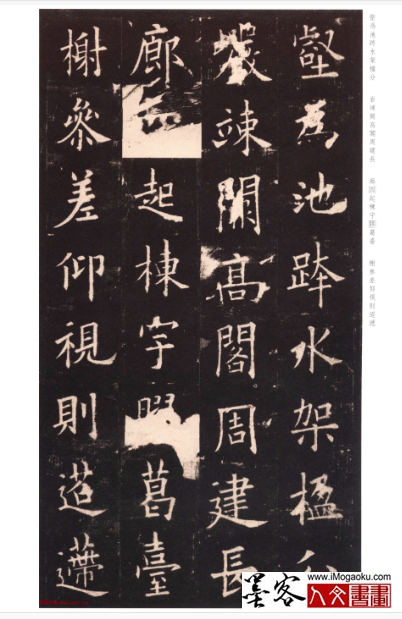 壑為池跨水架楹分 岩竦闕高閣周建長 廊四起棟宇膠葛臺 榭參差仰視則迢遰
壑為池跨水架楹分
巖竦闕高閣周建長
廊四起棟宇膠葛臺
榭叅差仰視則迢遰
墨客
www.iMogaoku.com
人文書畫